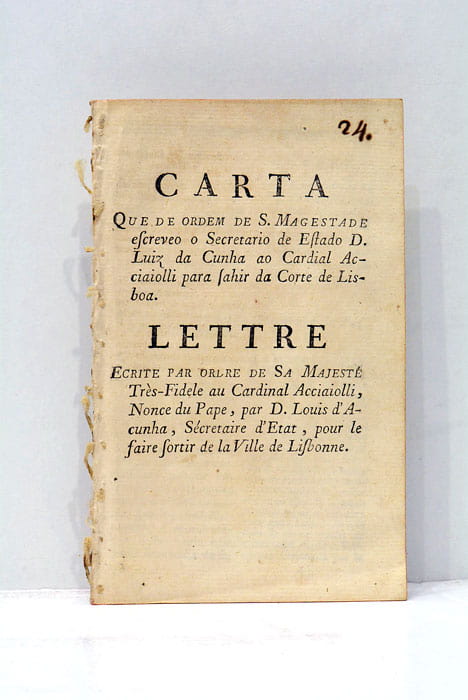 24.
CARTA
QUE DE ORDEM DE S. MAGESTADE
eſcreveo o Secretario de Eſtado D.
Luiz da Cunha ao Cardial Ac-
ciaiolli para ſahir da Corte de Lis-
boa.
LETTRE
ECRITE PAR ORDRE DE SA MAJESTÉ
Très-Fidele au Cardinal Acciaiolli,
Nonce du Pape, par D. Louis d'A-
cunha, Sécretaire d'Etat, pour le
faire ſortir de la Ville de Liſbonne.